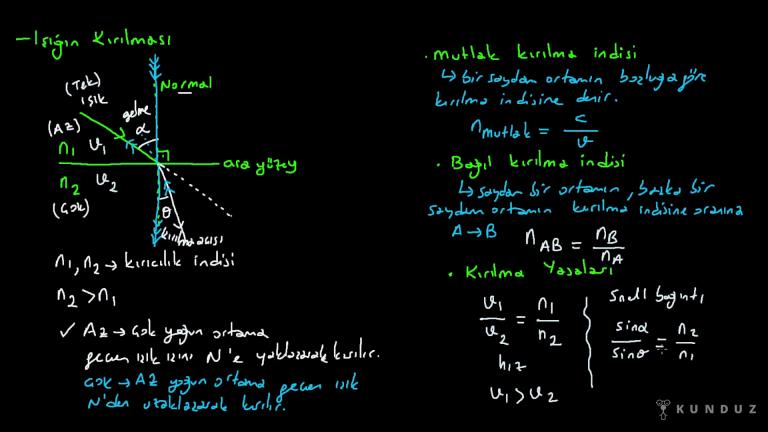 — Işığın Kırılması
Normal
(Tek)
ışık
gelme
α
(Az)
n₁ v₁
ara yüzey
n₂ v₂
(Çok)
θ
kırılma açısı
n₁, n₂ → kırıcılık indisi
n₂ > n₁
✓ Az → Çok yoğun ortama
geçen ışık ışını N'e yaklaşarak kırılır.
Çok → Az yoğun ortama geçen ışık
N'den uzaklaşarak kırılır.
· Mutlak kırılma indisi
↳ bir saydam ortamın boşluğa göre
kırılma indisine denir.
n mutlak = c/v
· Bağıl kırılma indisi
↳ saydam bir ortamın, başka bir
saydam ortamın kırılma indisine oranına
A → B n_AB = n_B/n_A
· Kırılma Yasaları
v₁/v₂ = n₁/n₂
hız
v₁ > v₂
Snell bağıntı
sinα/sinθ = n₂/n₁
KUNDUZ